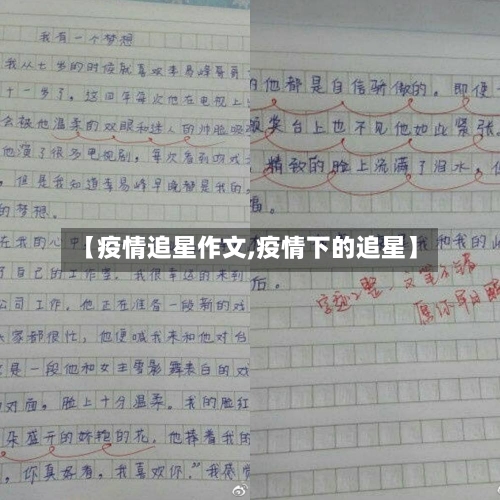 我有一个梦想
我从七岁的时候就喜欢李易峰哥哥
十一岁了。这四年每次他在电视上
会被他温柔的双眼和迷人的帅脸吸
他演了很多电视剧，每次看到
但是我知道李易峰早晚都是我的
的梦想。
在我的心中
了自己的工作室，我很幸运的来到
公司工作，他正在准备一段新的戏
大家都很忙，他便喊我来和他对台
是一段他和女主雪影舞表白的戏
对面，脸上十分温柔。我的脸红
朵盛开的娇艳的花，他捧着我的
，你真好看，我喜欢你。”我感
他都是自信骄傲的。即便
奖台上也不见他如此紧张。
精致的脸上流满了泪水，
我和我的
后。
字迹工整，文笔不错
愿你早日醒
【疫情追星作文,疫情下的追星】